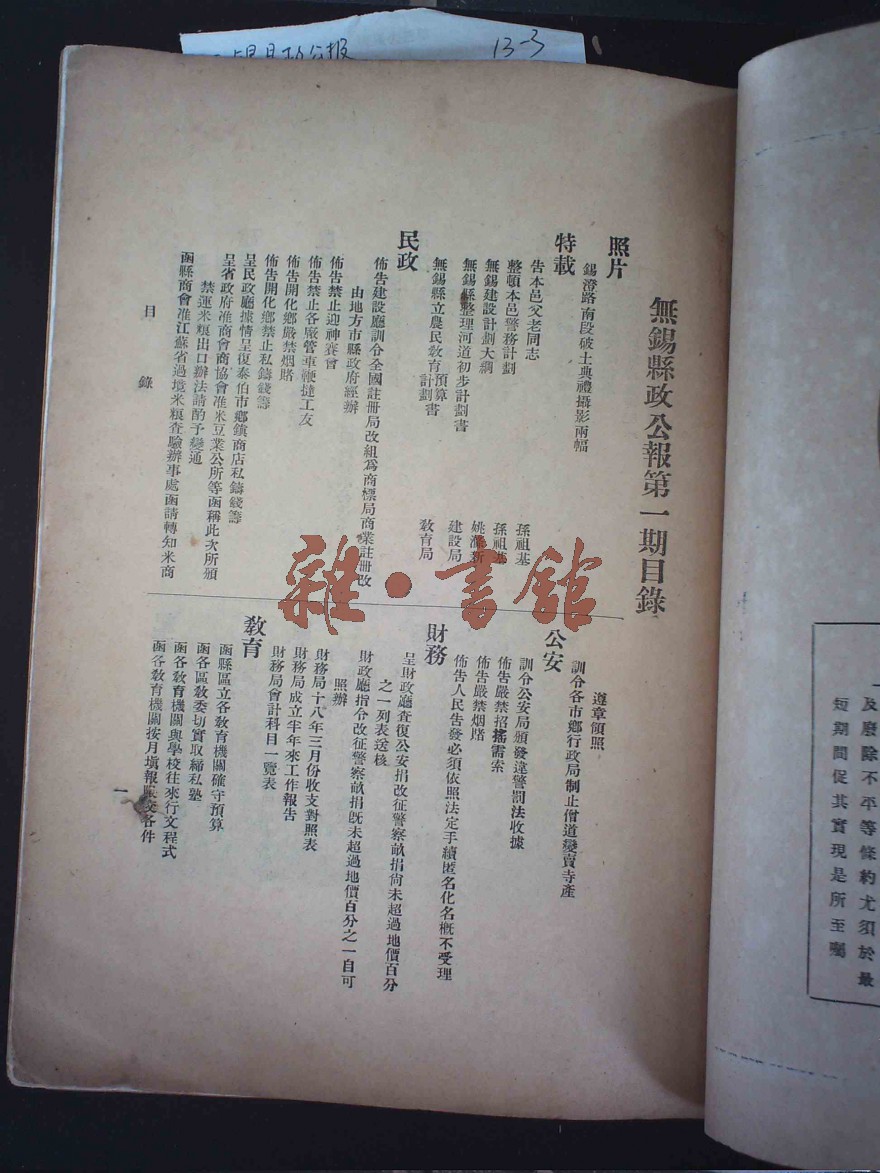 13-3
無錫縣政公報第一期目錄
照片
錫澄路南段破土典禮攝影兩幅
特載
告本邑父老同志 孫祖基
整頓本邑警務計劃 孫祖基
無錫建設計劃大綱 姚
無錫縣整理河道初步計劃書 建設局
無錫縣立農民教育預算計劃書 教育局
民政
佈告建設廳訓令全國註冊局改組為商標局商業註冊改
由地方市縣政府經辦
佈告禁止迎神賽會
佈告禁止各廠管車鞭撻工友
佈告開化鄉嚴禁烟賭
佈告開化鄉禁止私鑄錢籌
呈民政廳據情呈復泰伯市鄉鎮商店私鑄錢籌
呈省政府准商會商協會准米豆業公所等函稱此次所頒
禁運米糧出口辦法請酌予變通
函縣商會准江蘇省過境米糧查驗辦事處函請轉知米商
遵章領照
訓令各市鄉行政局制止僧道變賣寺產
公安
訓令公安局頒發違警罰法收據
佈告嚴禁招搖需索
佈告嚴禁烟賭
佈告人民告發必須依照法定手續匿名化名概不受理
財務
呈財政廳查復公安捐改征警察畝捐尚未超過地價百分
之一列表送核
財政廳指令改征警察畝捐既未超過地價百分之一自可
照辦
財務局十八年三月份收支對照表
財務局成立半年來工作報告
財務局會計科目一覽表
教育
函縣區立各教育機關確守預算
函各區教委切實取締私塾
函各教育機關與學校往來行文程式
函各教育機關按月填報各件
目錄
一
雜·書館
及廢除不平等條約尤須於最
短期間促其實現是所至囑